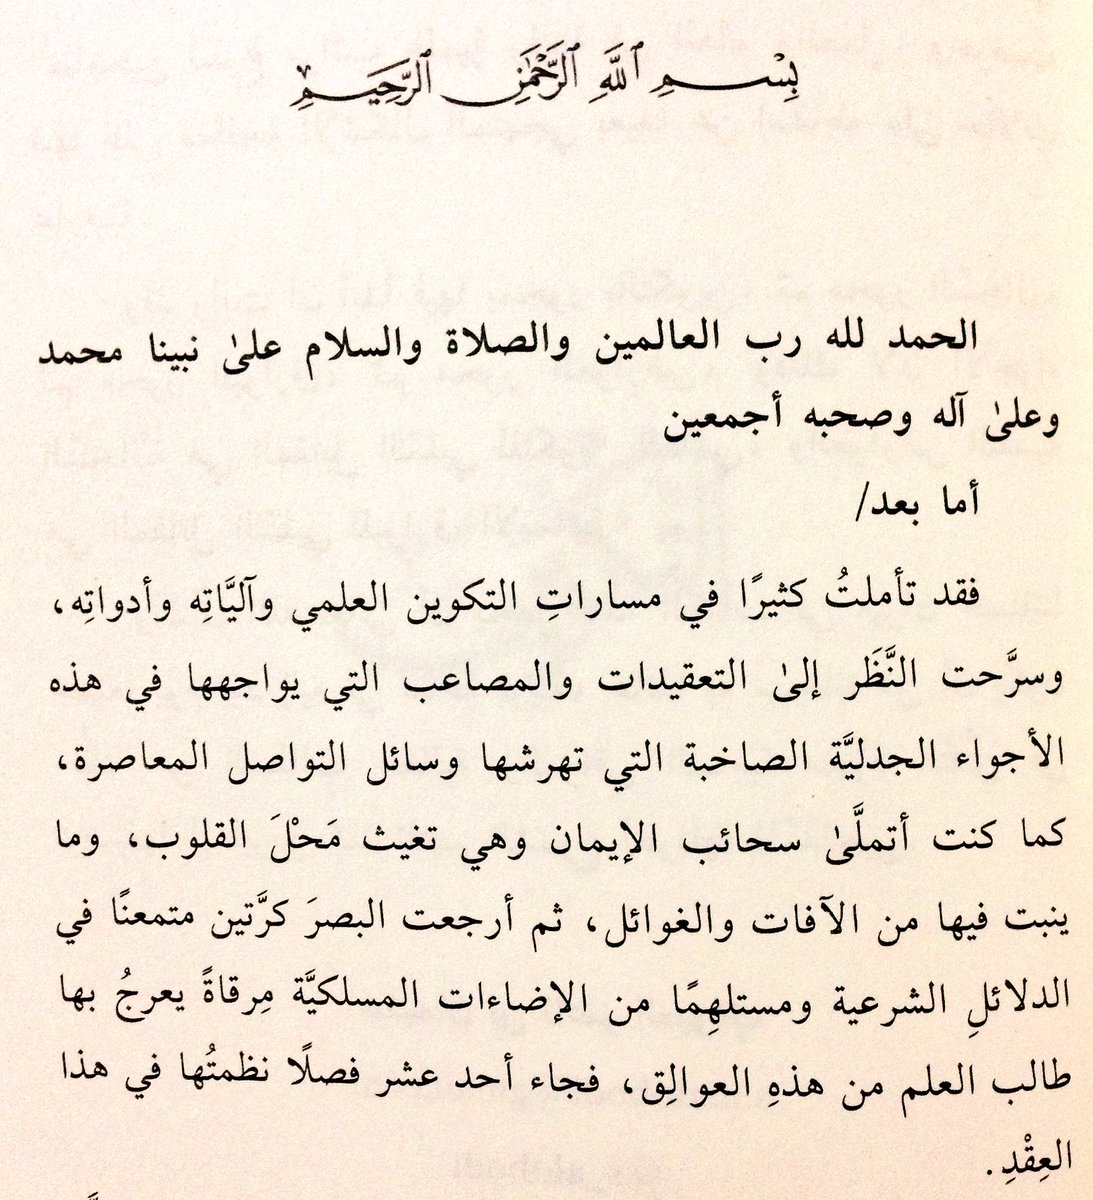 بِسْمِ ٱللَّهِ ٱلرَّحْمَٰنِ ٱلرَّحِيمِ
الحمد لله رب العالمين والصلاة والسلام علىٰ نبينا محمد
وعلىٰ آله وصحبه أجمعين
أما بعد/
فقد تأملتُ كثيرًا في مساراتِ التكوين العلمي وآليَّاتِه وأدواتِه،
وسرَّحت النَّظَر إلىٰ التعقيدات والمصاعب التي يواجهها في هذه
الأجواء الجدليَّة الصاخبة التي تهرشها وسائل التواصل المعاصرة،
كما كنت أتملَّىٰ سحائب الإيمان وهي تغيث مَحْلَ القلوب، وما
ينبت فيها من الآفات والغوائل، ثم أرجعت البصرَ كرَّتين متمعنًا في
الدلائلِ الشرعية ومستلهِمًا من الإضاءات المسلكيَّة مِرقاةً يعرجُ بها
طالب العلم من هذهِ العوالِق، فجاء أحد عشر فصلًا نظمتُها في هذا
العِقْدِ.